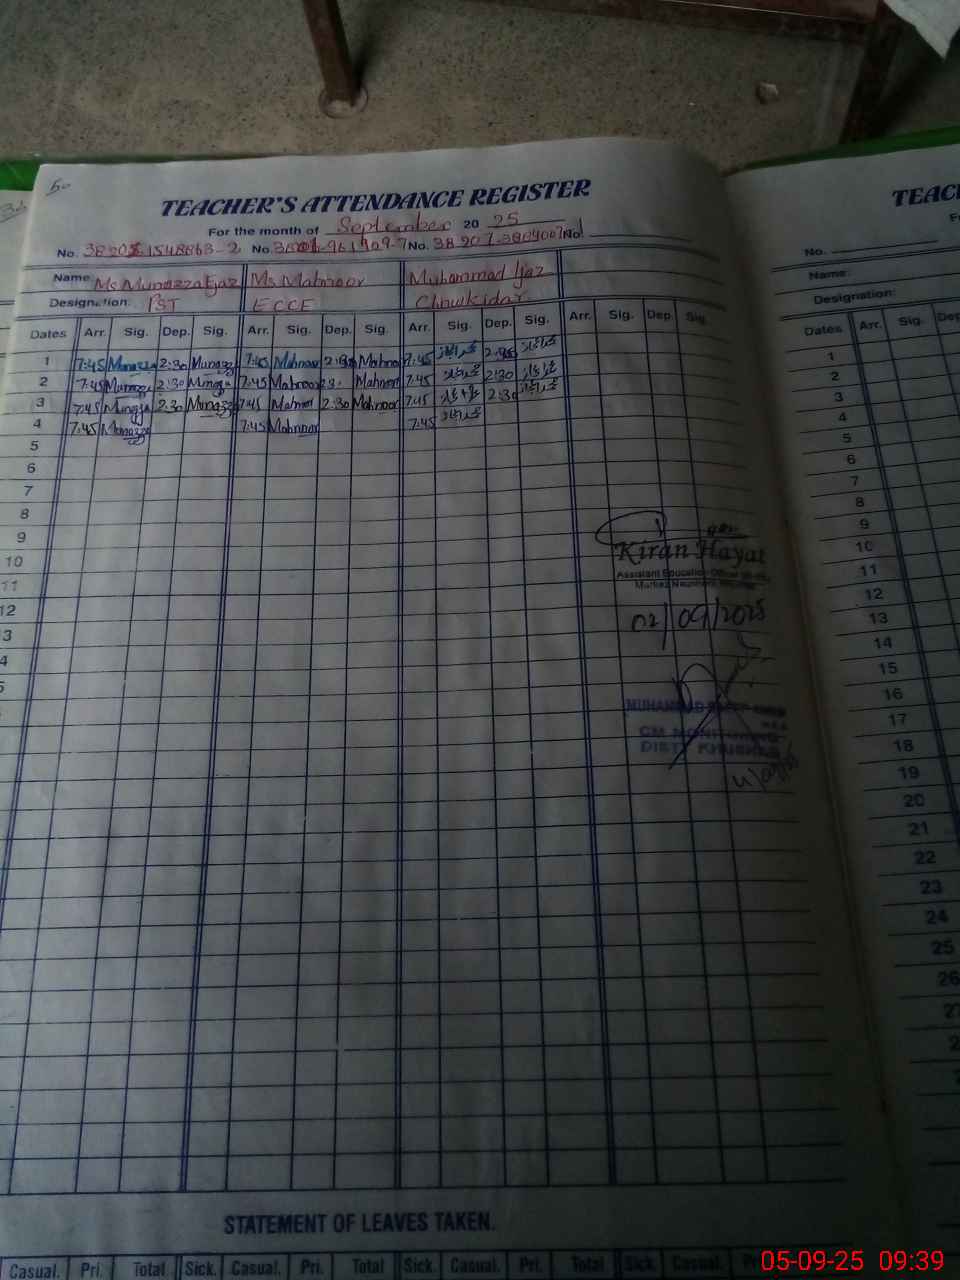 50
TEACHER'S ATTENDANCE REGISTER
For the month of September 2025
No. No. No. No.
Name: Ms Munazza Ejaz Ms Mahnoor Muhammad Ijaz
Designation: PST ECCE Chowkidar
Dates Arr. Sig. Dep. Sig. Arr. Sig. Dep. Sig. Arr. Sig. Dep. Sig. Arr. Sig. Dep. Sig.
1 7:45 Munazza 2:30 Munazza 7:45 Mahnoor Mahnoor 7:45 محمد اعجاز محمد اعجاز
2 7:45 Munazza 2:30 Munazza 7:45 Mahnoor Mahnoor 7:45 محمد اعجاز 2:30 محمد اعجاز
3 7:45 Munazza 2:30 Munazza 7:45 Mahnoor 2:30 Mahnoor 7:45 محمد اعجاز 2:30 محمد اعجاز
4 7:45 Munazza 7:45 Mahnoor 7:45 محمد اعجاز
5
6
7
8
9
10
11
12
3
4
5
Kiran Hayat
Assistant Education Officer
Markaz
02/09/2025
MUHAMMAD
CM MONITORING
DISTT KHUSHAB
STATEMENT OF LEAVES TAKEN.
Casual. Pri. Total Sick. Casual. Pri. Total Sick. Casual. Pri. Total Sick. Casual. Pri.
TEAC
No.
Name:
Designation:
Dates Arr. Sig. Dep
1
2
3
4
5
6
7
8
9
10
11
12
13
14
15
16
17
18
19
20
21
22
23
24
25
26
27
05-09-25 09:39